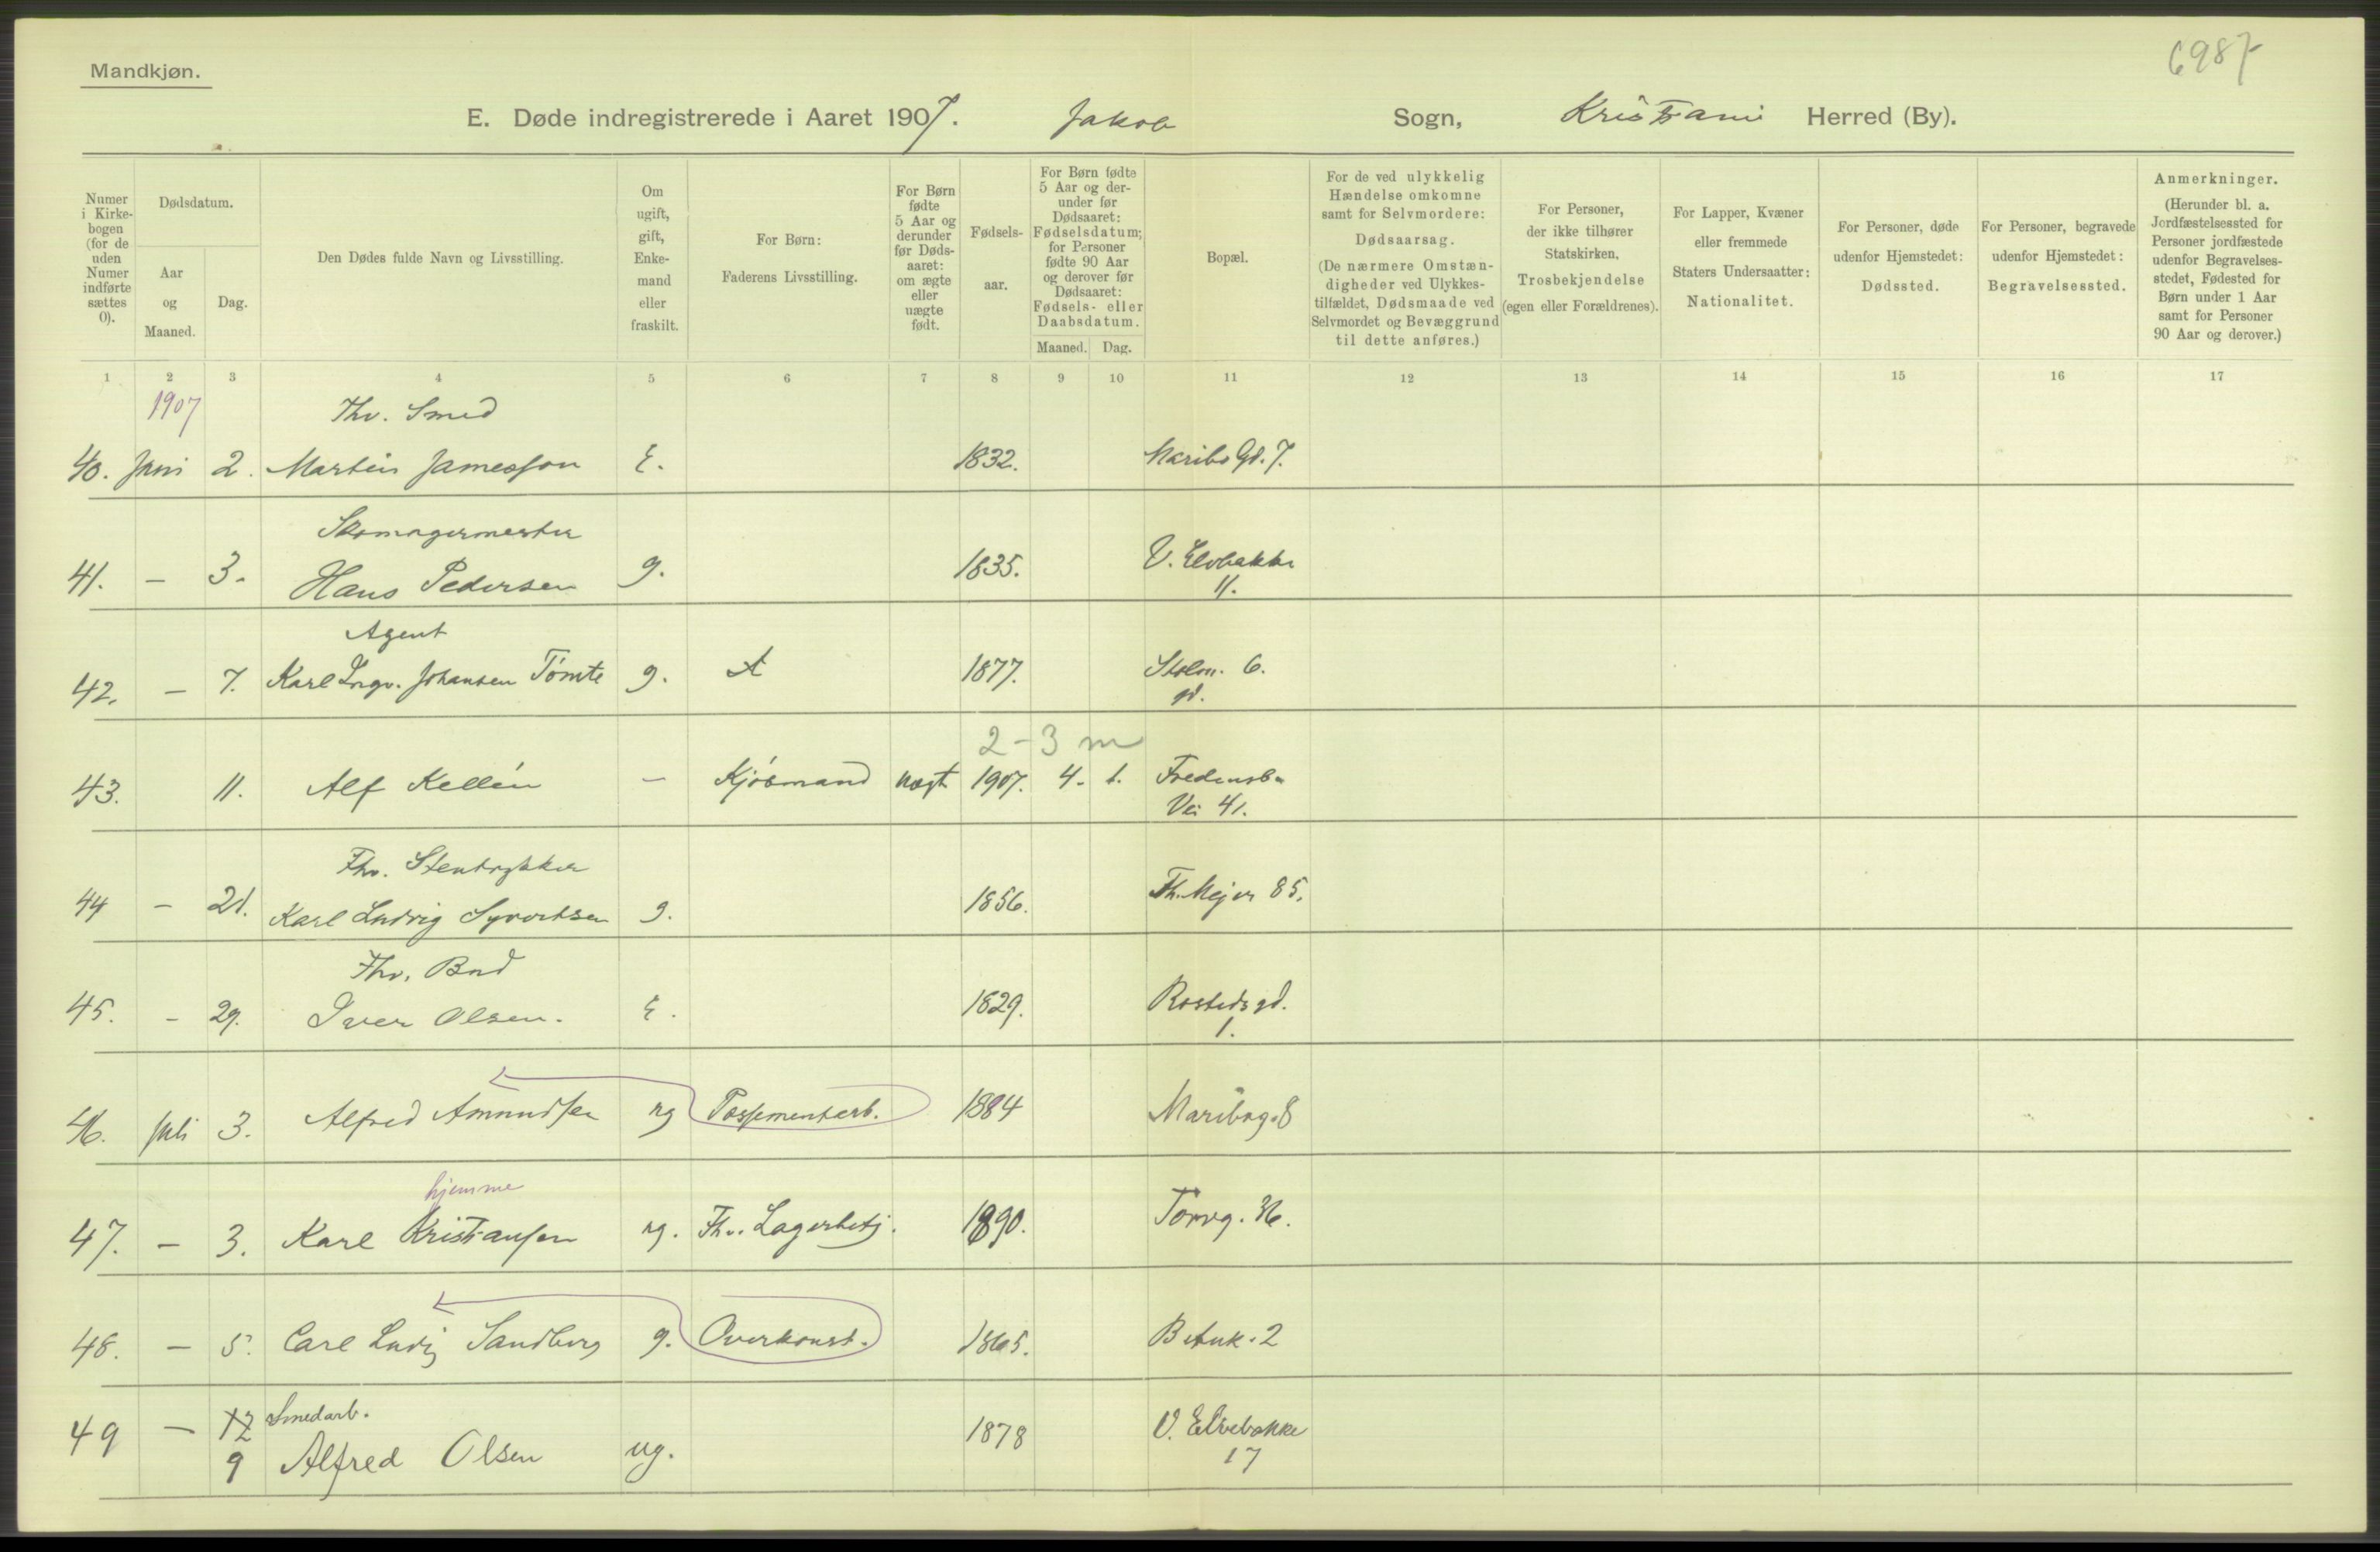 6987
Mandkjøn.
E. Døde indregistrerede i Aaret 1907. Jakob Sogn, Kristiani Herred (By).
Numer i Kirke- bogen (for de uden Numer indførte sættes 0).
Dødsdatum.
Aar og Maaned.
Dag.
Den Dødes fulde Navn og Livsstilling.
Om ugift, gift, Enke- mand eller fraskilt.
For Børn: Faderens Livsstilling.
For Børn fødte 5 Aar og derunder før Døds- aaret: om ægte eller uægte født.
Fødsels- aar.
For Børn fødte 5 Aar og der- under før Dødsaaret: Fødselsdatum; for Personer fødte 90 Aar og derover før Dødsaaret: Fødsels- eller Daabsdatum.
Maaned. Dag.
Bopæl.
For de ved ulykkelig Hændelse omkomne samt for Selvmordere: Dødsaarsag. (De nærmere Omstæn- digheder ved Ulykkes- tilfældet, Dødsmaade ved Selvmordet og Bevæggrund til dette anføres.)
For Personer, der ikke tilhører Statskirken, Trosbekjendelse (egen eller Forældrenes).
For Lapper, Kvæner eller fremmede Staters Undersaatter: Nationalitet.
For Personer, døde udenfor Hjemstedet: Dødssted.
For Personer, begravede udenfor Hjemstedet: Begravelsessted.
Anmerkninger. (Herunder bl. a. Jordfæstelsessted for Personer jordfæstede udenfor Begravelses- stedet, Fødested for Børn under 1 Aar samt for Personer 90 Aar og derover.)
1 2 3 4 5 6 7 8 9 10 11 12 13 14 15 16 17
1907 Fhv. Smed
40. Juni 2. Martin Jamesson E. 1832. Maribo Gd. 7.
Skomagermester
41. – 3. Hans Pedersen g. 1835. V. Elvbakke
11.
Agent
42. – 7. Karl Ingv. Johansen Tömte g. 1877. Stolm. 6.
gd.
2-3 m
43. 11. Alf Kellén – Kjöbmand uægt 1907. 4. 1. Fredensb.
Vei 41.
Fhv. Stentrykker
44 – 21. Karl Ludvig Syvertsen g. 1856. Th. Mejer 85.
Fhv. Bud
45. – 29. Iver Olsen. E. 1829. Rostedsgd.
1.
46. Juli 3. Alfred Amundsen ug Possementarb. 1884 Maribog. 8
hjemme
47. – 3. Karl Kristiansen ug. Fhv. Lagerbetj. 1890. Torvg. 36.
48. – 5. Carl Ludvig Sandberg g. Overkonst. 1865. Betauk. 2
Smedarb.
49 – 12 9 Alfred Olsen ug. 1878 V. Elvebakke
17